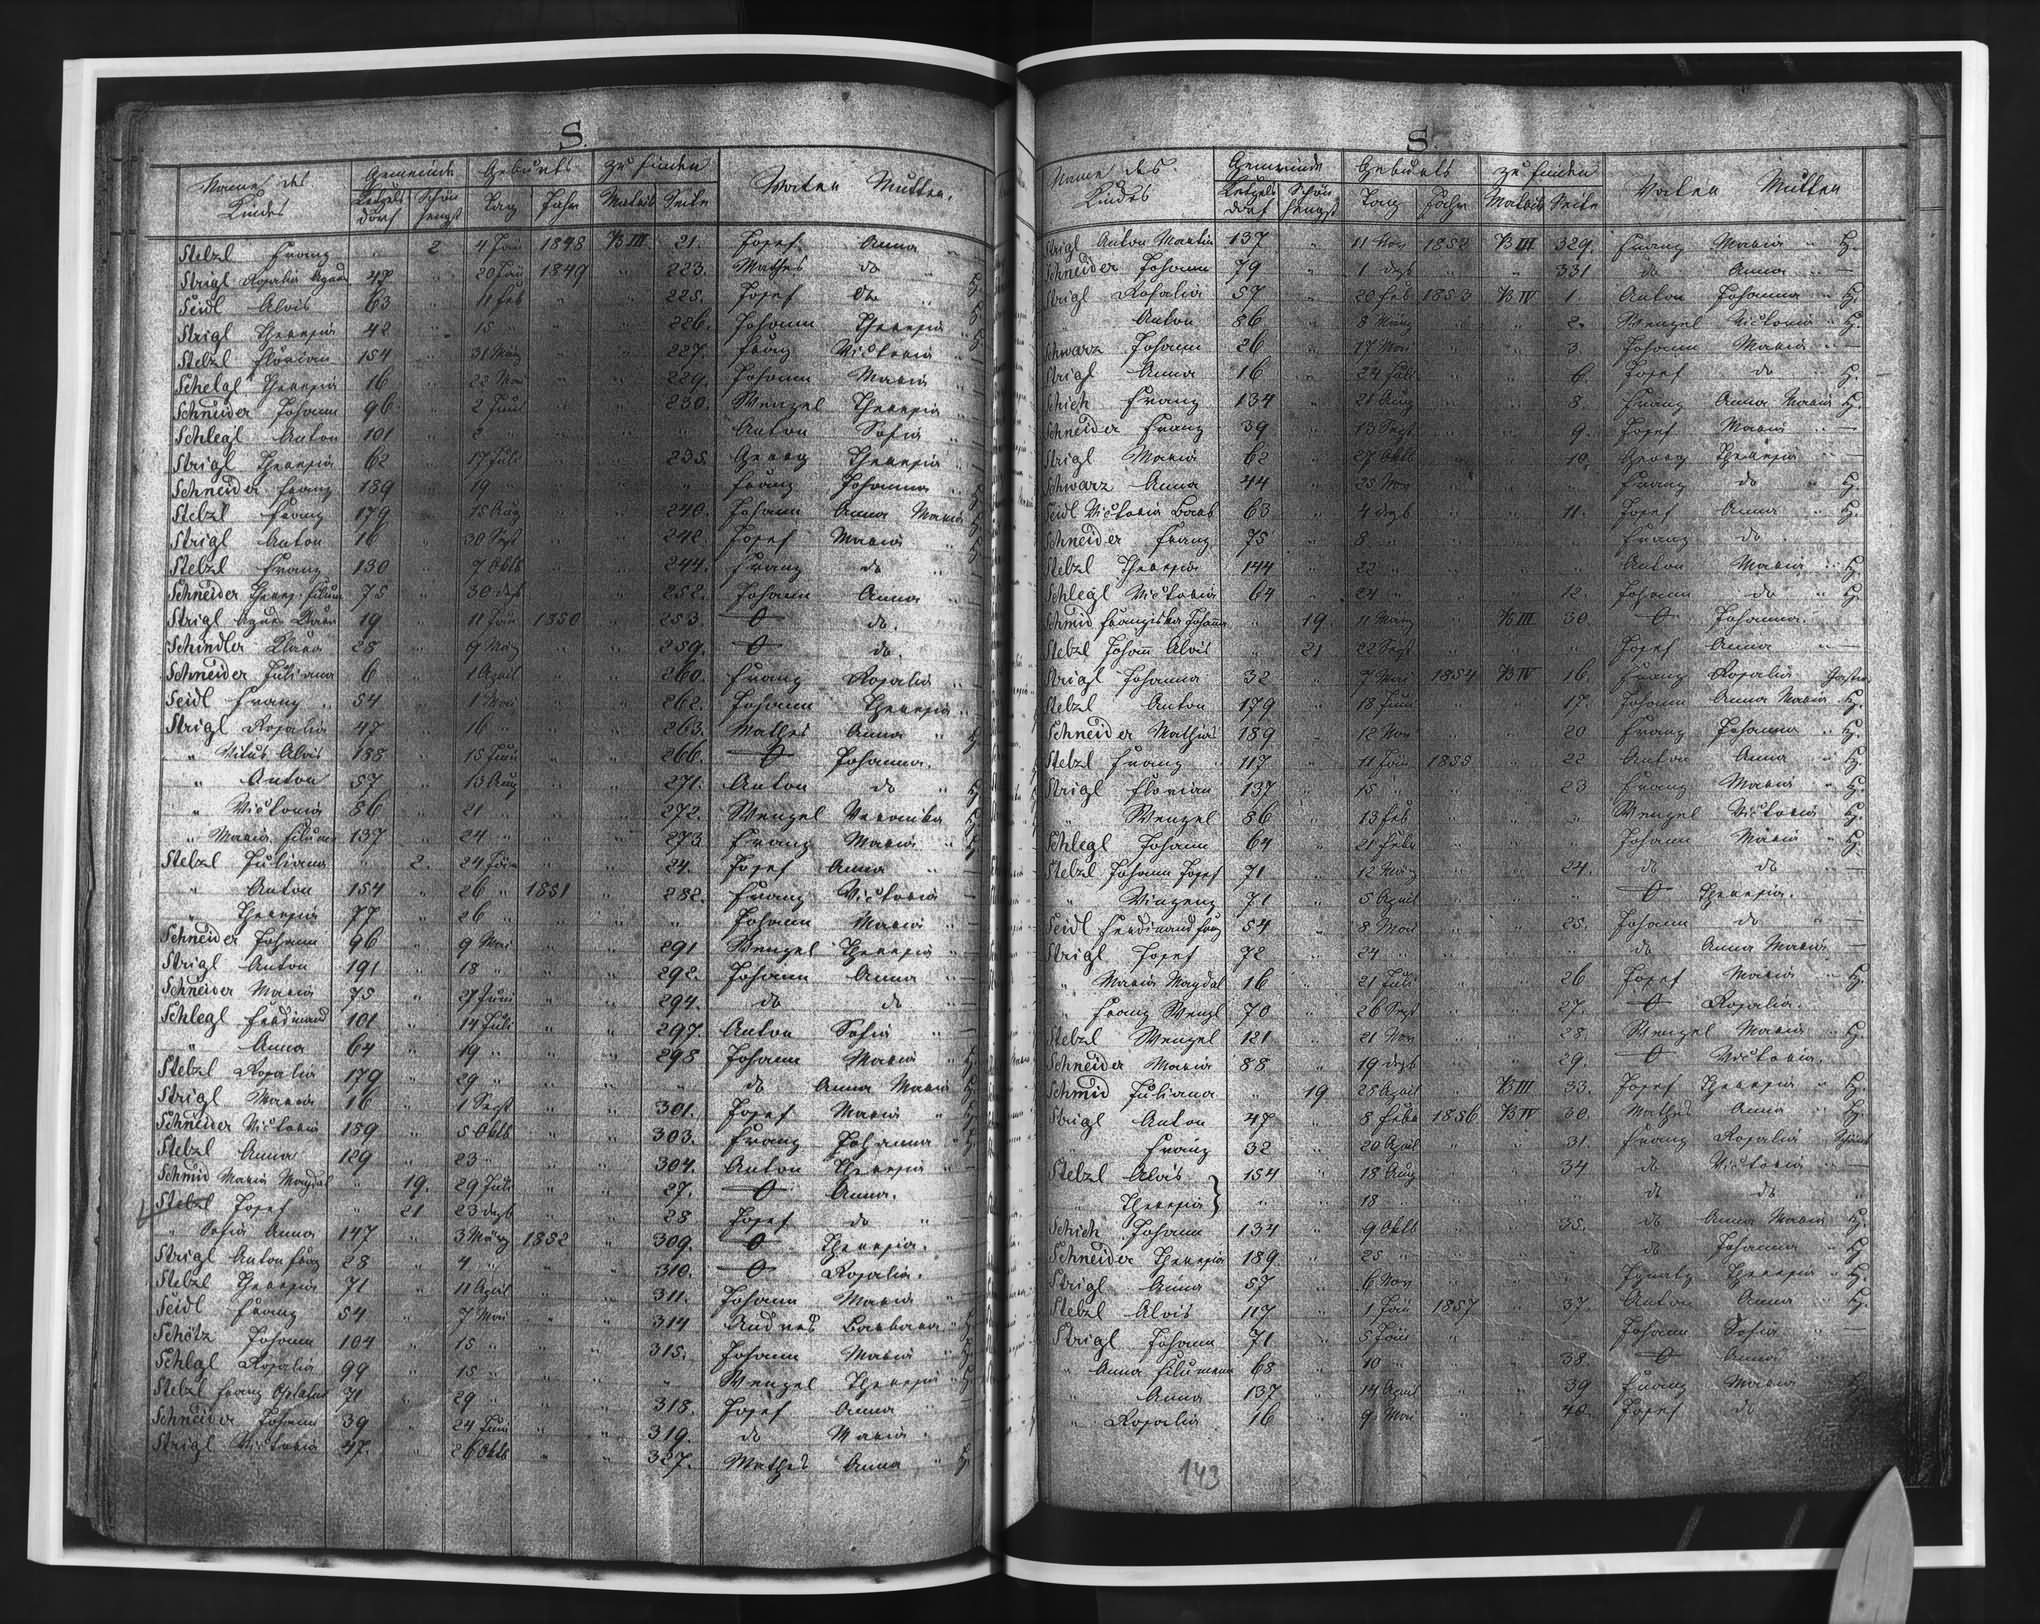 S.
Name des Kindes Gemeinde Geburts zu finden Vater Mutter
Ketzelsdorf Schönhengst Tag Jahr Matrik Seite
Stelzl Franz " 2 4 Jän 1848 B III 21. Josef Anna "
Strigl Rosalia 47 " 20 Jän 1849 " 223. Mathes do "
Seidl Alois 63 " 11 Feb " " 225. Josef do " H.
Strigl Theresia 42 " 15 " " " 226. Johann Theresia " H.
Stelzl Florian 154 " 31 März " " 227. Franz Victoria " —
Schelgl Theresia 16 " 22 Mai " " 229. Johann Maria "
Schneider Johann 96 " 2 Juni " " 230. Wenzel Theresia "
Schlegl Anton 101 " 2 " " " " Anton Sofia " —
Strigl Theresia 62 " 17 Juli " " 235. Georg Theresia " —
Schneider Franz 189 " 19 " " " " Franz Johanna " H.
Stelzl Franz 179 " 15 Aug " " 240. Johann Anna Maria H.
Strigl Anton 16 " 30 Sept " " 242. Josef Maria " H.
Stelzl Franz 130 " 7 Oktb " " 244. Franz do " —
Schneider Theres. Filum 75 " 30 dezb " " 252. Johann Anna " —
Strigl 19 " 11 Jän 1850 " 253. O do.
Schindler Klara 28 " 9 März " " 259. O do.
Schneider Juliana 6 " 1 April " " 260. Franz Rosalia " —
Seidl Franz 54 " 1 Mai " " 262. Johann Theresia "
Strigl Rosalia 47 " 16 " " " 263. Mathes Anna " H.
" Vitus Alois 188 " 15 Juni " " 266. O Johanna.
" Anton 57 " 13 Aug " " 271. Anton do " H.
" Victoria 86 " 21 " " " 272. Wenzel Veronika H.
" Maria Filumen 137 " 24 " " " 273 Franz Maria " H.
Stelzl Juliana " 2. 24 Jän " " 24. Josef Anna " —
" Anton 154 " 26 " 1851 " 282. Franz Victoria —
" Theresia 77 " 26 " " " " Johann Maria " —
Schneider Johann 96 " 9 Mai " " 291 Wenzel Theresia " —
Strigl Anton 191 " 18 " " " 292. Johann Anna " —
Schneider Maria 75 " 27 Juni " " 294. do do " —
Schlegl Ferdinand 101 " 14 Juli " " 297. Anton Sofia " —
" Anna 64 " 19 " " " 298 Johann Maria " H.
Stelzl Rosalia 179 " 29 " " " " do Anna Maria H.
Strigl Maria 16 " 1 Sept " " 301. Josef Maria " H.
Schneider Victoria 189 " 5 Oktb " " 303. Franz Johanna " H.
Stelzl Anna 129 " 23 " " " 304. Anton Theresia " —
Schmid Maria Magdal " 19. 29 Juli " " 27. O Anna.
Stelzl Josef " 21 23 dezb " " 28 Josef do " —
" Sofia Anna 147 " 3 März 1852 " 309. O Theresia.
Strigl Anton Franz 28 " 4 " " " 310. O Rosalia.
Stelzl Theresia 71 " 11 April " " 311. Johann Maria "
Seidl Franz 54 " 7 Mai " " 314 Andres Barbara " H.
Schötz Johann 104 " 15 " " " 315. Johann Maria " H.
Schlgl Rosalia 99 " 15 " " " " Wenzel Theresia " H.
Stelzl Franz 71 " 29 " " " 318. Josef Anna "
Schneider Johann 39 " 24 Juni " " 319. do Maria "
Strigl Victoria 47. " 26 Oktb " " 327. Mathes Anna " H.
S.
Name des Kindes Gemeinde Geburts zu finden Vater Mutter
Ketzelsdorf Schönhengst Tag Jahr Matrik Seite
Strigl Anton Martin 137 " 11 Nov 1852 B III 329. Franz Maria " H.
Schneider Johann 79 " 1 dezb " " 331 do Anna " —
Strigl Rosalia 57 " 20 Feb 1853 B IV 1. Anton Johanna " H.
" Anton 86 " 8 März " " 2. Wenzel Victoria " H.
Schwarz Johann 26 " 17 Mai " " 3. Johann Maria " —
Strigl Anna 16 " 24 Juli " " 6. Josef do " H.
Schich Franz 134 " 21 Aug " " 8. Franz Anna Maria H.
Schneider Franz 39 " 13 Sept " " 9. Josef Maria " —
Strigl Maria 62 " 27 Oktb " " 10. Georg Theresia " —
Schwarz Anna 44 " 25 Nov " " " Franz do " H.
Seidl Victoria Barb 63 " 4 dezb " " 11. Josef Anna " H.
Schneider Franz 75 " 8 " " " " Franz do "
Stelzl Theresia 144 " 22 " " " " Anton Maria " H.
Schlegl Victoria 64 " 24 " " " 12. Johann do " H.
Schmid Franziska Johanna " 19. 11 März " B III 30. O Johanna.
Stelzl Johann Alois " 21 22 Sept " " " Josef Anna " —
Strigl Johanna 32 " 7 Mai 1854 B IV 16. Franz Rosalia
Stelzl Anton 179 " 18 Juni " " 17. Johann Anna Maria H.
Schneider Mathias 189 " 12 Nov " " 20 Franz Johanna " H.
Stelzl Franz 117 " 11 Jän 1855 " 22 Anton Anna " H.
Strigl Florian 137 " 15 " " " 23 Franz Maria " H.
" Wenzel 86 " 13 Feb " " " Wenzel Victoria H.
Schlegl Johann 64 " 21 Febr " " " Johann Maria " H.
Stelzl Johann Josef 71 " 12 März " " 24. do do " —
" Vinzenz 71 " 5 April " " " O Theresia.
Seidl Ferdinand Franz 54 " 8 Mai " " 25. Johann do " —
Strigl Josef 72 " 24 " " " " do Anna Maria —
" Maria Magdal 16 " 21 Juli " " 26 Josef Maria " H.
" Franz Wenzl 70 " 26 Sept " " 27. O Rosalia.
Stelzl Wenzel 121 " 21 Nov " " 28. Wenzel Maria " H.
Schneider Maria 88 " 19 dezb " " 29. O Victoria.
Schmid Juliana " 19 28 April " B III 33. Josef Theresia " H.
Strigl Anton 47 " 8 Febr 1856 B IV 30. Mathes Anna " H.
" Franz 32 " 20 April " " 31. Franz Rosalia
Stelzl Alois } 154 " 18 Aug " " 34 do Victoria " —
" Theresia } " " 18 " " " " do do "
Schich Johann 134 " 9 Oktb " " 35. do Anna Maria H.
Schneider Theresia 189 " 25 " " " " do Johanna " H.
Strigl Anna 57 " 6 Nov " " " Ignatz Theresia " H.
Stelzl Alois 117 " 1 Jän 1857 " 37. Anton Anna " H.
Strigl Johann 71 " 5 Jän " " " Johann Sofia " —
" Anna Filumena 68 " 10 " " " 38 O Anna
" Anna 137 " 14 April " " 39 Franz Maria H.
" Rosalia 16 " 9 Mai " " 40. Josef do
143